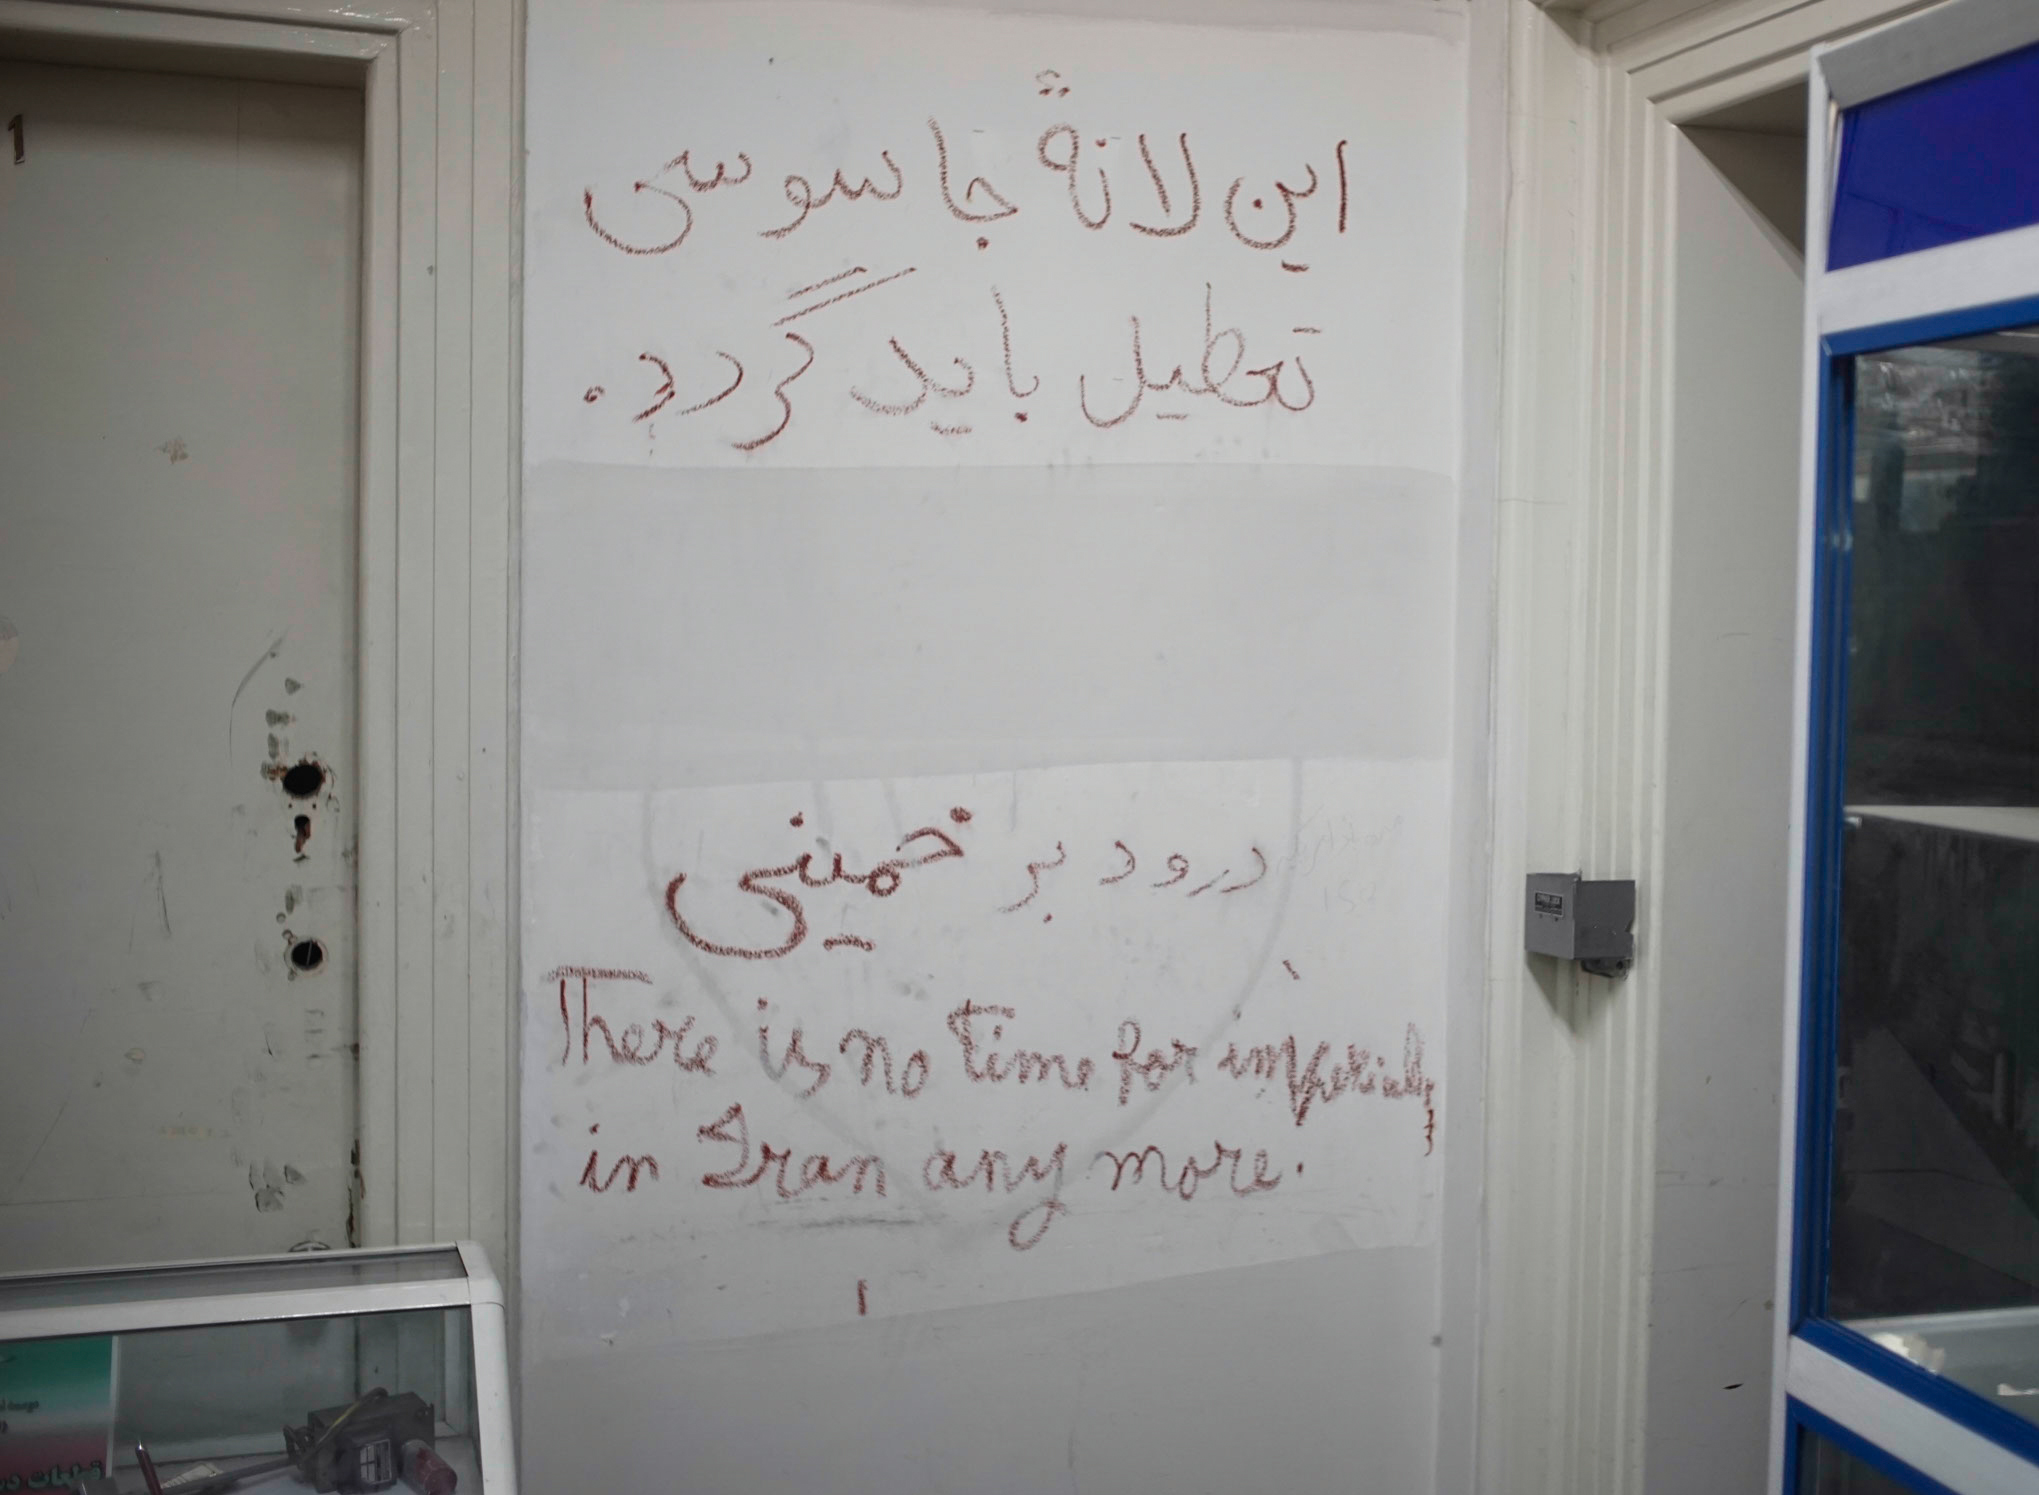 1
این لانهٔ جاسوسی
تعطیل باید گردد.
درود بر خمینی
There is no time for
in Iran any more.
قطعات